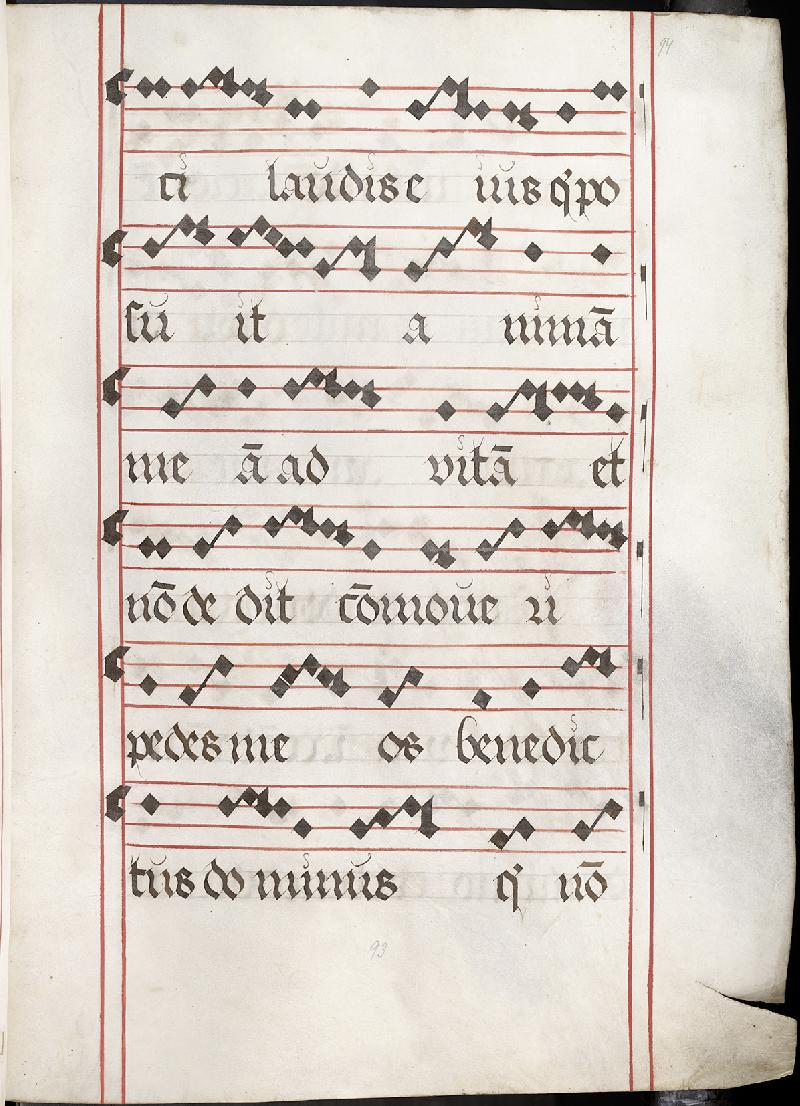 94
ci laudis e iuis q̨ po
su it a nimā
me ā ad vitā et
nō de dit cōmoue ri
pedes me os benedic
tus do minus q̨ nō
93